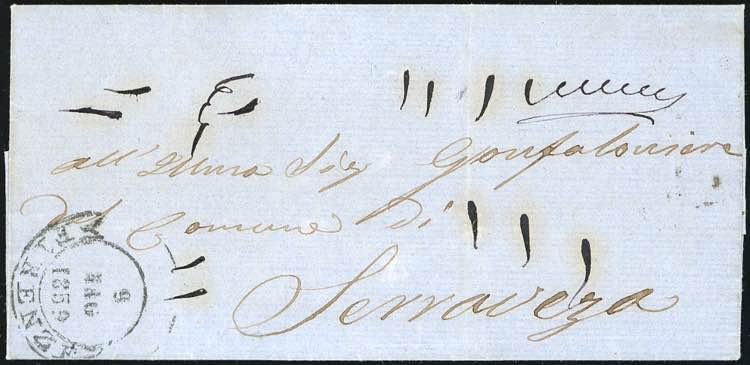 all'Illmo Sig Gonfaloniere
Del Comune Di
Serravezza
FIRENZE
1859